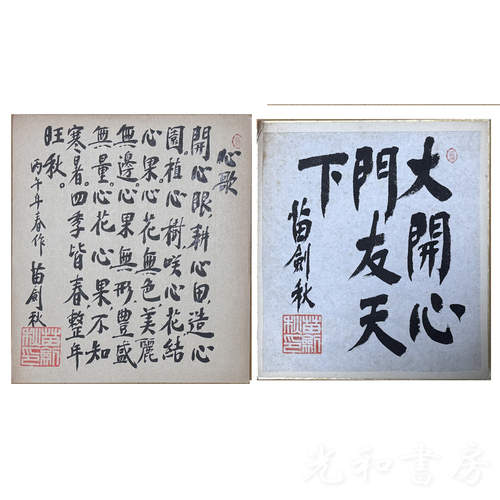 心歌
開心眼，耕心田，造心
園。植心樹，咲心花結
心果。心花無色美麗
無邊。心果無形，豊盛
無量。心花心果不知
寒暑。四季皆春整年
旺秋。
丙午年春作 苗劍秋
苗劍秋印
大開心
門友天
下
苗劍秋
苗劍秋印
光和書房